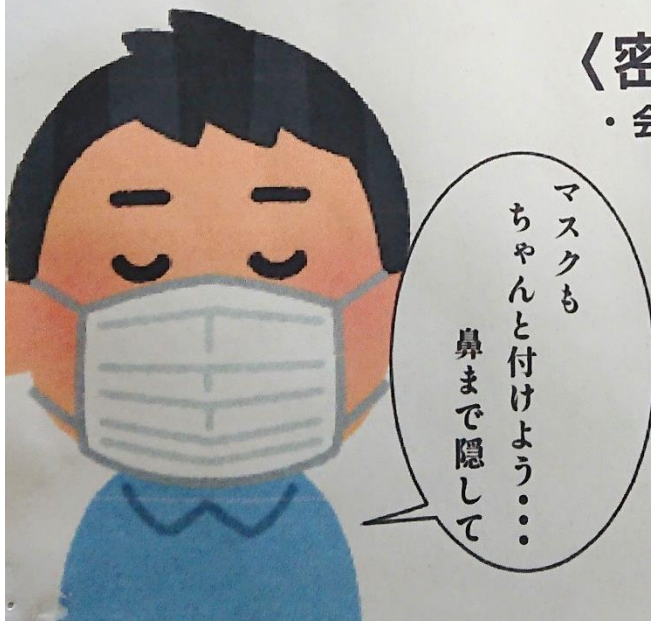 〈密
・会
マスクも
ちゃんと付けよう・・・
鼻まで隠して